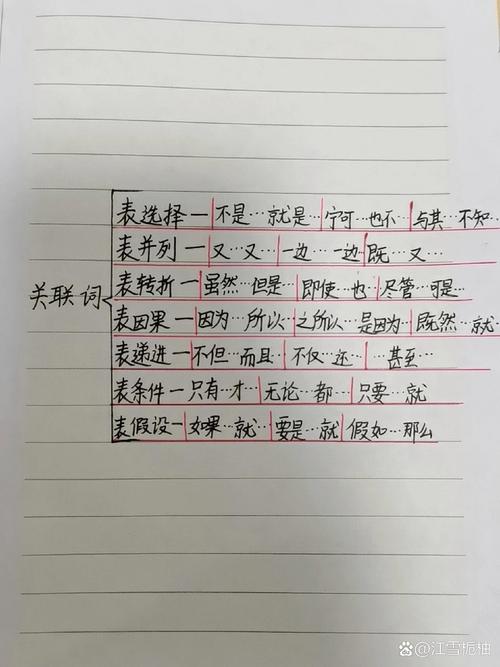 表选择一不是…就是…宁可…也不…与其…不知…
表并列一又…又…一边…一边既…又…
表转折一虽然…但是…即使…也…尽管…可是…
关联词
表因果一因为…所以…之所以…是因为…既然…就
表递进一不但…而且…不仅…还……甚至…
表条件一只有…才…无论…都…只要…就
表假设一如果…就…要是…就假如…那么
百家号@江雪栀柚